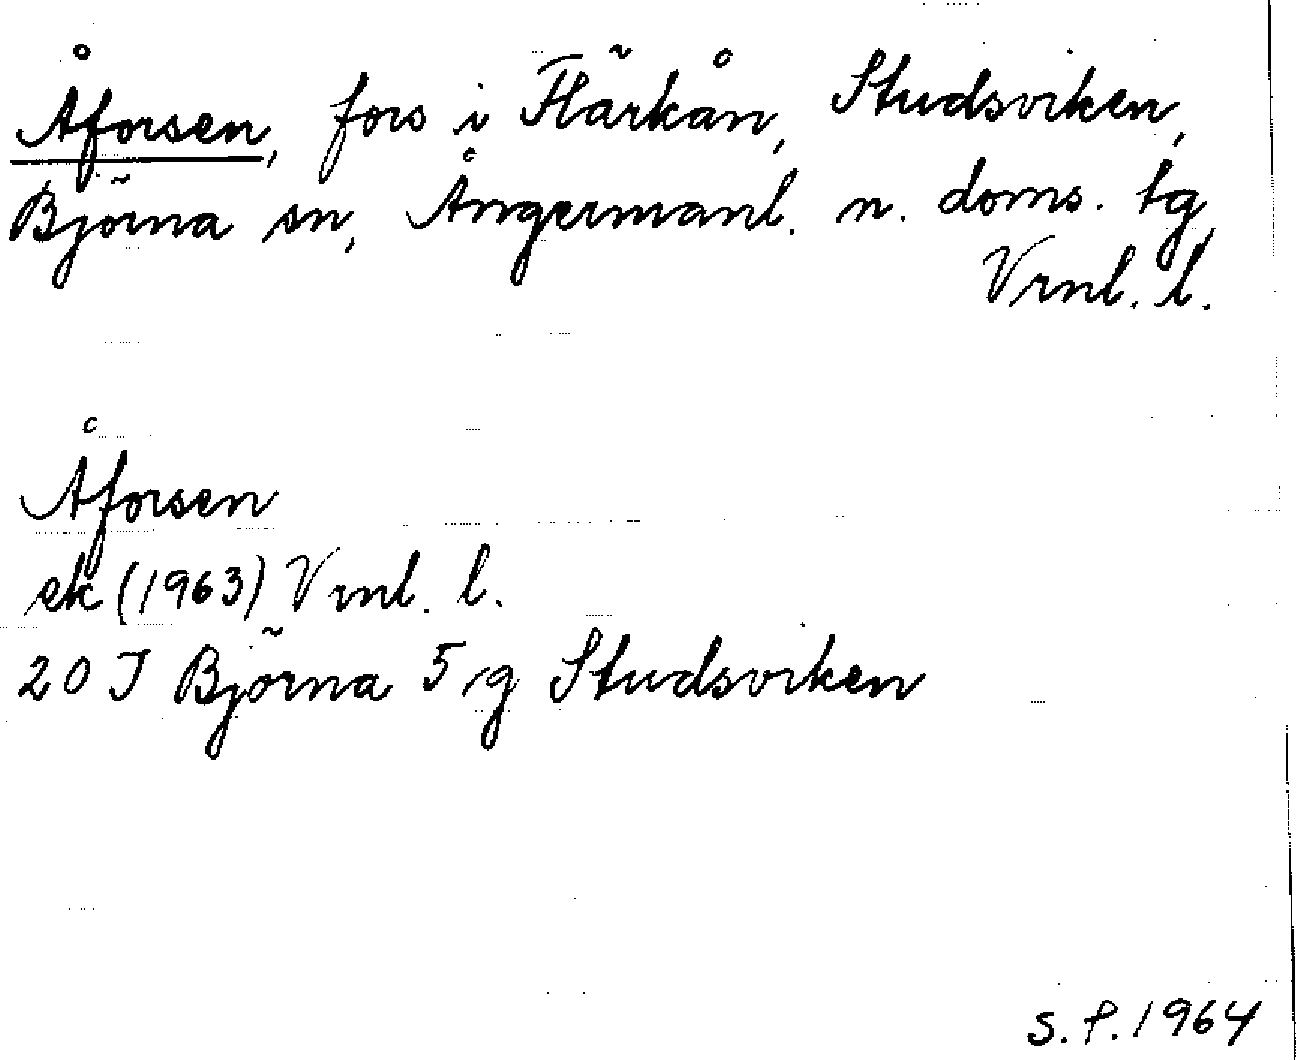 Åforsen, fors i Flärkån, Studsviken,
Björna sn, Ångermanl. n. doms. tg,
Vrnl. l.
Åforsen
ek (1963) Vrnl. l.
20 J Björna 5 g Studsviken
S.P. 1964